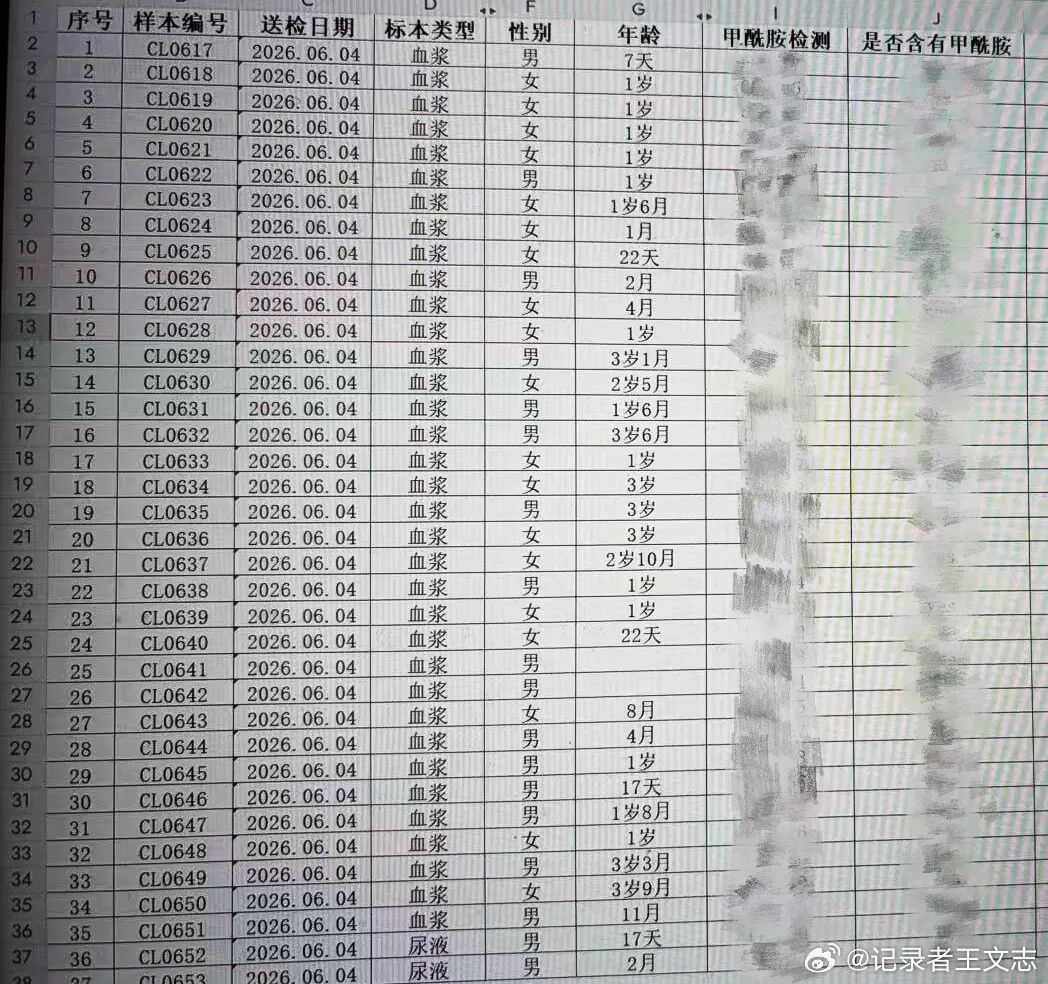 D F G I J
1 序号 样本编号 送检日期 标本类型 性别 年龄 甲酰胺检测 是否含有甲酰胺
2 1 CL0617 2026.06.04 血浆 男 7天
3 2 CL0618 2026.06.04 血浆 女 1岁
4 3 CL0619 2026.06.04 血浆 女 1岁
5 4 CL0620 2026.06.04 血浆 女 1岁
6 5 CL0621 2026.06.04 血浆 女 1岁
7 6 CL0622 2026.06.04 血浆 男 1岁
8 7 CL0623 2026.06.04 血浆 女 1岁6月
9 8 CL0624 2026.06.04 血浆 女 1月
10 9 CL0625 2026.06.04 血浆 女 22天
11 10 CL0626 2026.06.04 血浆 男 2月
12 11 CL0627 2026.06.04 血浆 女 4月
13 12 CL0628 2026.06.04 血浆 女 1岁
14 13 CL0629 2026.06.04 血浆 男 3岁1月
15 14 CL0630 2026.06.04 血浆 女 2岁5月
16 15 CL0631 2026.06.04 血浆 男 1岁6月
17 16 CL0632 2026.06.04 血浆 男 3岁6月
18 17 CL0633 2026.06.04 血浆 女 1岁
19 18 CL0634 2026.06.04 血浆 女 3岁
20 19 CL0635 2026.06.04 血浆 男 3岁
21 20 CL0636 2026.06.04 血浆 女 3岁
22 21 CL0637 2026.06.04 血浆 女 2岁10月
23 22 CL0638 2026.06.04 血浆 男 1岁
24 23 CL0639 2026.06.04 血浆 女 1岁
25 24 CL0640 2026.06.04 血浆 女 22天
26 25 CL0641 2026.06.04 血浆 男
27 26 CL0642 2026.06.04 血浆 男
28 27 CL0643 2026.06.04 血浆 女 8月
29 28 CL0644 2026.06.04 血浆 男 4月
30 29 CL0645 2026.06.04 血浆 男 1岁
31 30 CL0646 2026.06.04 血浆 男 17天
32 31 CL0647 2026.06.04 血浆 男 1岁8月
33 32 CL0648 2026.06.04 血浆 女 1岁
34 33 CL0649 2026.06.04 血浆 男 3岁3月
35 34 CL0650 2026.06.04 血浆 女 3岁9月
36 35 CL0651 2026.06.04 血浆 男 11月
37 36 CL0652 2026.06.04 尿液 男 17天
38 37 CL0653 2026.06.04 尿液 男 2月
@记录者王文志